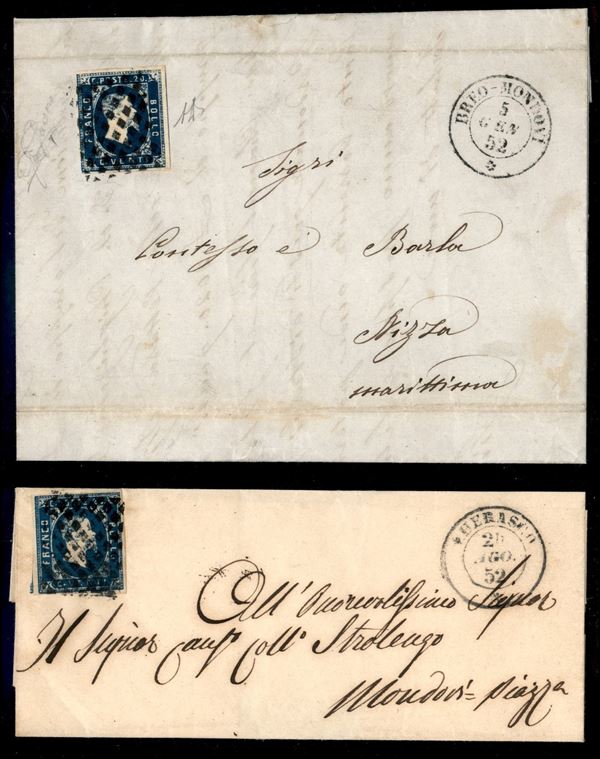 C. POSTE. 20.
FRANCO
BOLLO
C. VENTI
BREO-MONDOVI
5
GEN
52
Sigri
Contesso e Barla
Nizza
marittima
FRANCO
CHERASCO
AGO.
52
All' Onorevolissimo Signor
Il Signor Strolengo
Mondovì = Piazza